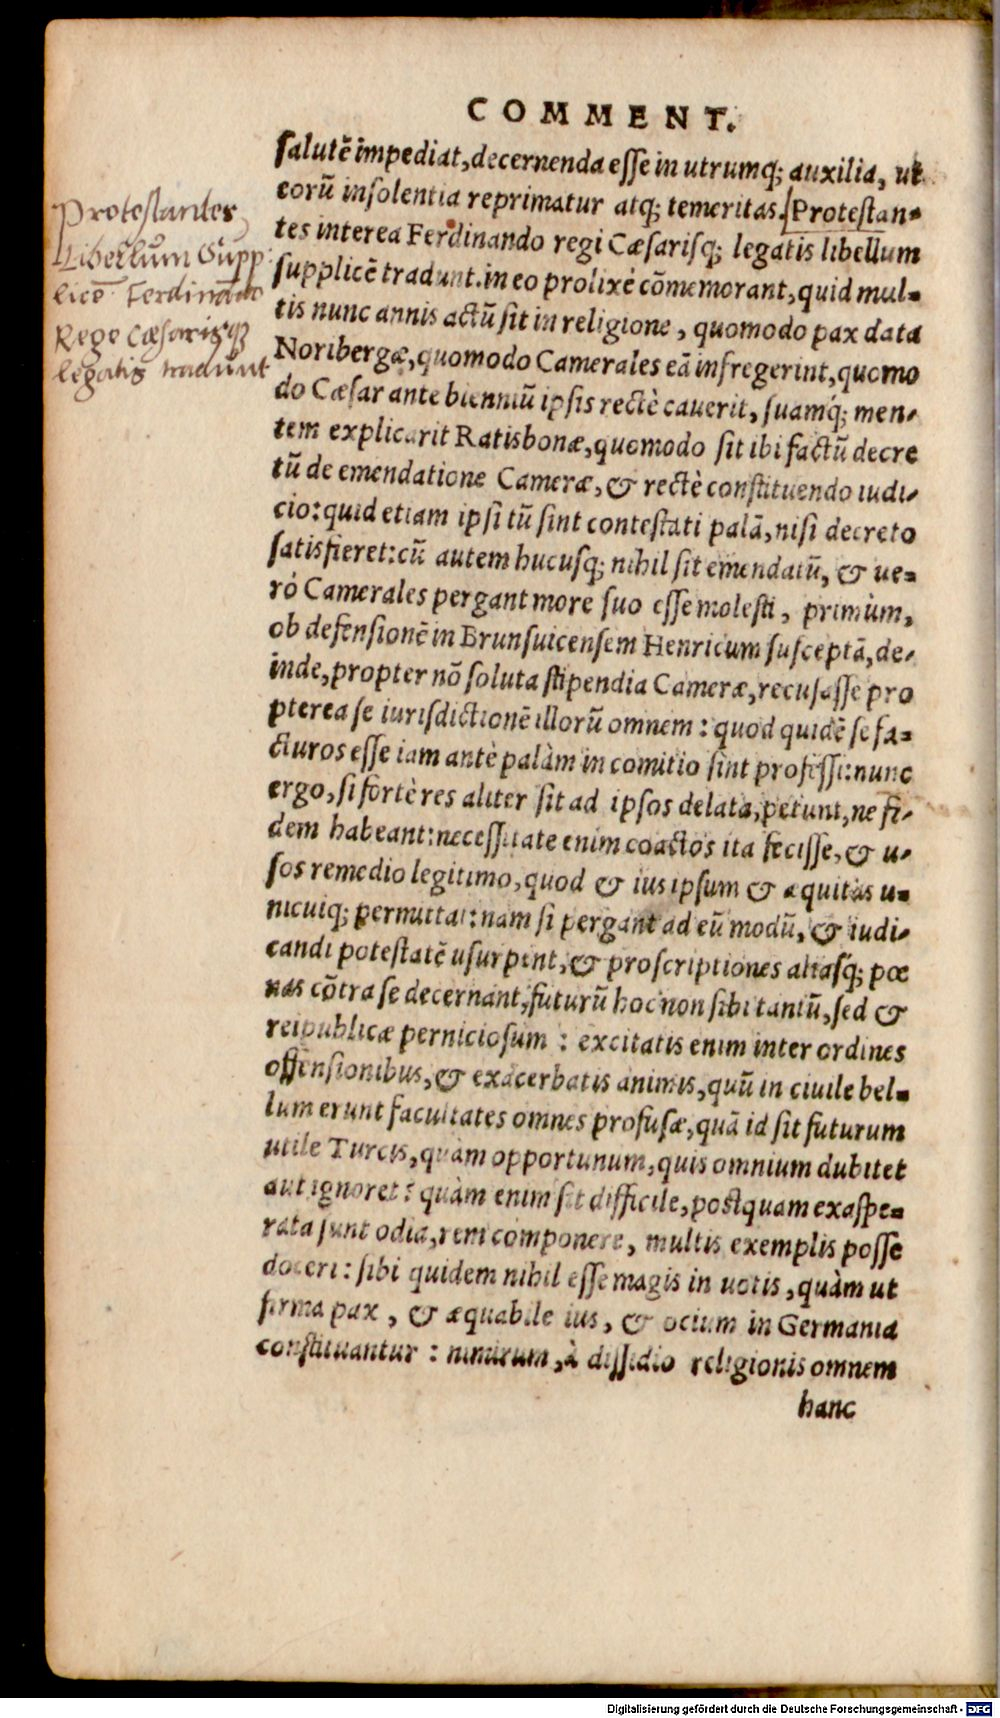 COMMENT.
salutē impediat, decernenda esse in utrumq; auxilia, ut
eorū insolentia reprimatur atq; temeritas. Protestan=
tes interea Ferdinando regi Cæsarisq; legatis libellum
supplicē tradunt. in eo prolixè cōmemorant, quid mul=
tis nunc annis actū sit in religione, quomodo pax data
Noribergæ, quomodo Camerales eā infregerint, quomo
do Cæsar ante bienniū ipsis rectè cauerit, suamq́; men-
tem explicarit Ratisbonæ, quomodo sit ibi factū decre
tū de emendatione Cameræ, & rectè constituendo iudi-
cio: quid etiam ipsi tū sint contestati palā, nisi decreto
satisfieret: cū autem hucusq; nihil sit emendatū, & ue=
rò Camerales pergant more suo esse molesti, primùm,
ob defensionē in Brunsuicensem Henricum susceptā, de-
inde, propter nō soluta stipendia Cameræ, recusasse pro
pterea se iurisdictionē illorū omnem: quod quidē se fa=
cturos esse iam antè palàm in comitio sint professi: nunc
ergo, si fortè res aliter sit ad ipsos delata, petunt, ne fi-
dem habeant: necessitate enim coactos ita fecisse, & u-
sos remedio legitimo, quod & ius ipsum & æquitas u=
nicuiq; permittat: nam si pergant ad eū modū, & iudi-
candi potestatē usurpent, & proscriptiones aliasq́; pœ
nas cōtra se decernant, futurū hoc non sibi tantū, sed &
reipublicæ perniciosum: excitatis enim inter ordines
offensionibus, & exacerbatis animis, quū in ciuile bel=
lum erunt facultates omnes profusæ, quā id sit futurum
utile Turcis, quàm opportunum, quis omnium dubitet
aut ignoret? quàm enim sit difficile, postquam exaspe=
rata sunt odia, rem componere, multis exemplis posse
doceri: sibi quidem nihil esse magis in uotis, quàm ut
firma pax, & æquabile ius, & ocium in Germania
constituantur: nimirum, à dissidio religionis omnem
hanc
Protestantes
Libellum Supp
licē Ferdinando
Rege Cæsarisq;
legatis tradunt
Digitalisierung gefördert durch die Deutsche Forschungsgemeinschaft - DFG